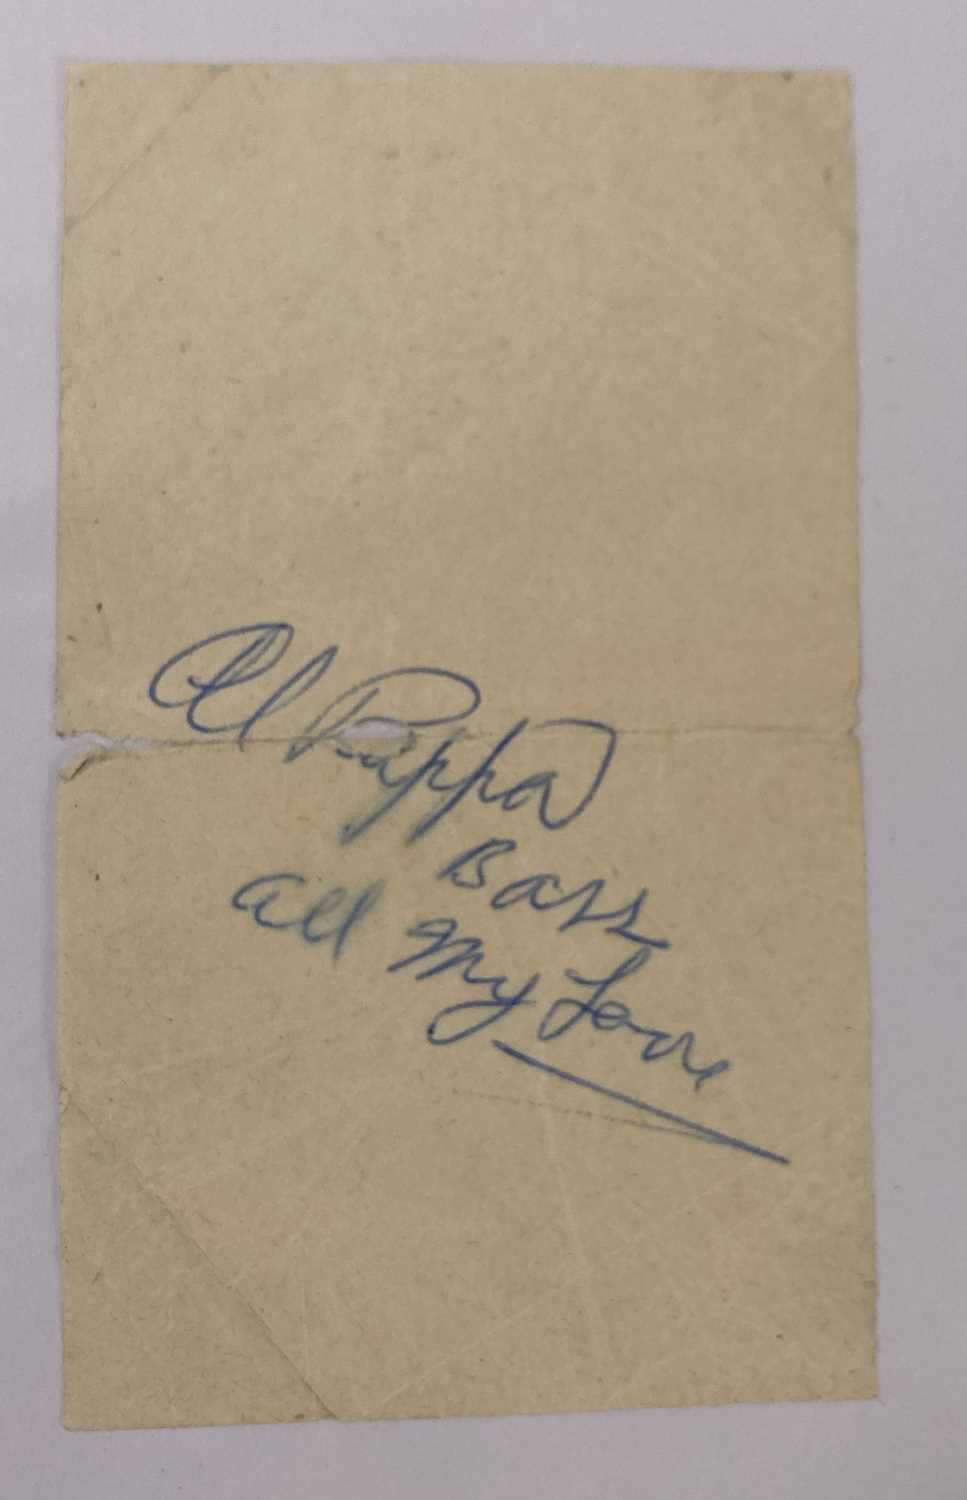 Al Rappa
Bass
all My Love